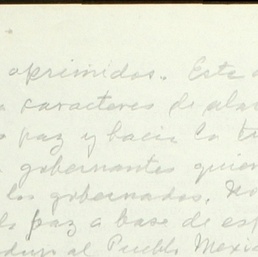 oprimidos. Este
caracteres de
paz y hacia la
gobernantes quien
los gobernados. No
la paz a base de
al Pueblo Mexic